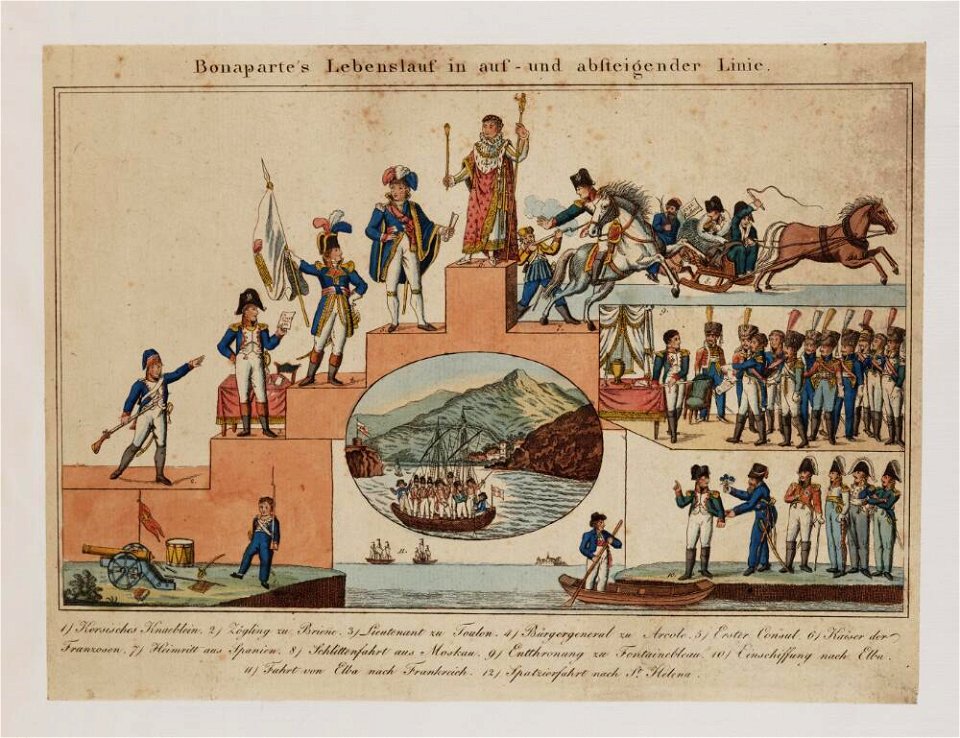 Bonaparte's Lebenslauf in auf- und absteigender Linie.
1) Korsisches Knaeblein. 2) Zögling zu Briene. 3) Lieutenant zu Toulon. 4) Bürgergeneral zu Arcole. 5) Erster Consul. 6) Kaiser der
Franzosen. 7) Heimritt aus Spanien. 8) Schlittenfahrt aus Moskau. 9) Entthronung zu Fontainebleau. 10) Einschiffung nach Elba.
11) Fahrt von Elba nach Frankreich. 12) Spatzierfahrt nach St. Helena.